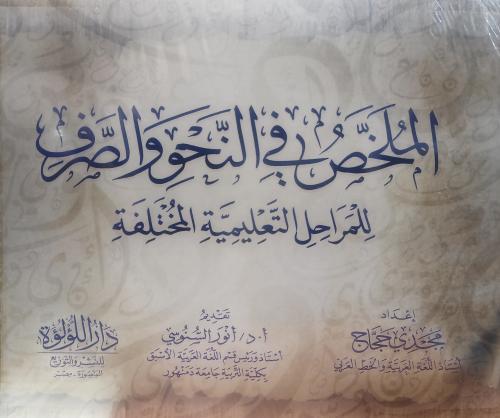 الْمُلَخَّصُ فِي النَّحْوِ وَالصَّرْفِ
لِلْمَرَاحِلِ التَّعْلِيمِيَّةِ الْمُخْتَلِفَةِ
إعداد
مجدي حجاج
أستاذ اللغة العربية والخط العربي
تقديم
أ.د/ أنور السنوسي
أستاذ ورئيس قسم اللغة العربية الأسبق
بكلية التربية جامعة دمنهور
دار اللؤلؤة
للنشر والتوزيع
المنصورة - مصر